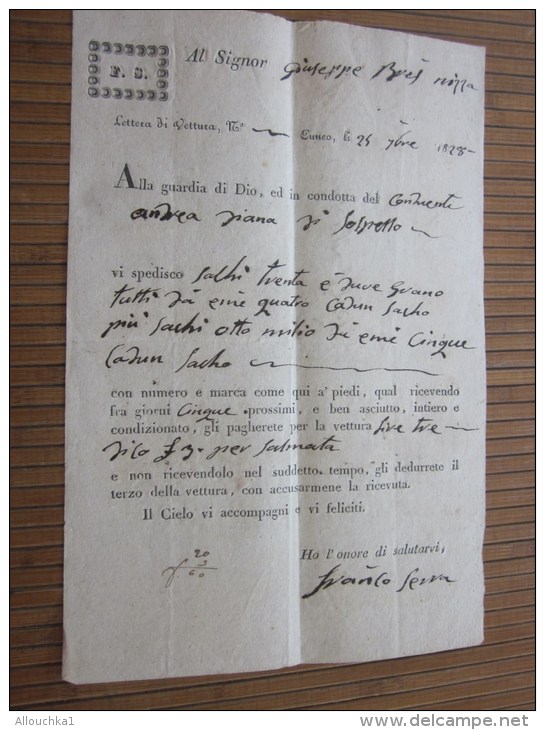 F. S.
Al Signor Giuseppe Bres nizza
Lettera di Vettura, N.º Cuneo, li 25 7bre 1828
Alla guardia di Dio, ed in condotta del Conducente
andrea Diana di Sospello
vi spedisco Sachi trenta e duve Grano
tutti da emi quatro Cadun Sacho
più Sachi otto milio da emi Cinque
Cadun Sacho
con numero e marca come qui a' piedi, qual ricevendo
fra giorni Cinque prossimi, e ben asciutto, intiero e
condizionato, gli pagherete per la vettura lire tre
dico £ 3 per Salmata
e non ricevendolo nel suddetto tempo, gli dedurrete il
terzo della vettura, con accusarmene la ricevuta.
Il Cielo vi accompagni e vi feliciti.
Ho l'onore di salutarvi,
franco Serra
20
3
f. 60
Allouchka1
www.delcampe.net